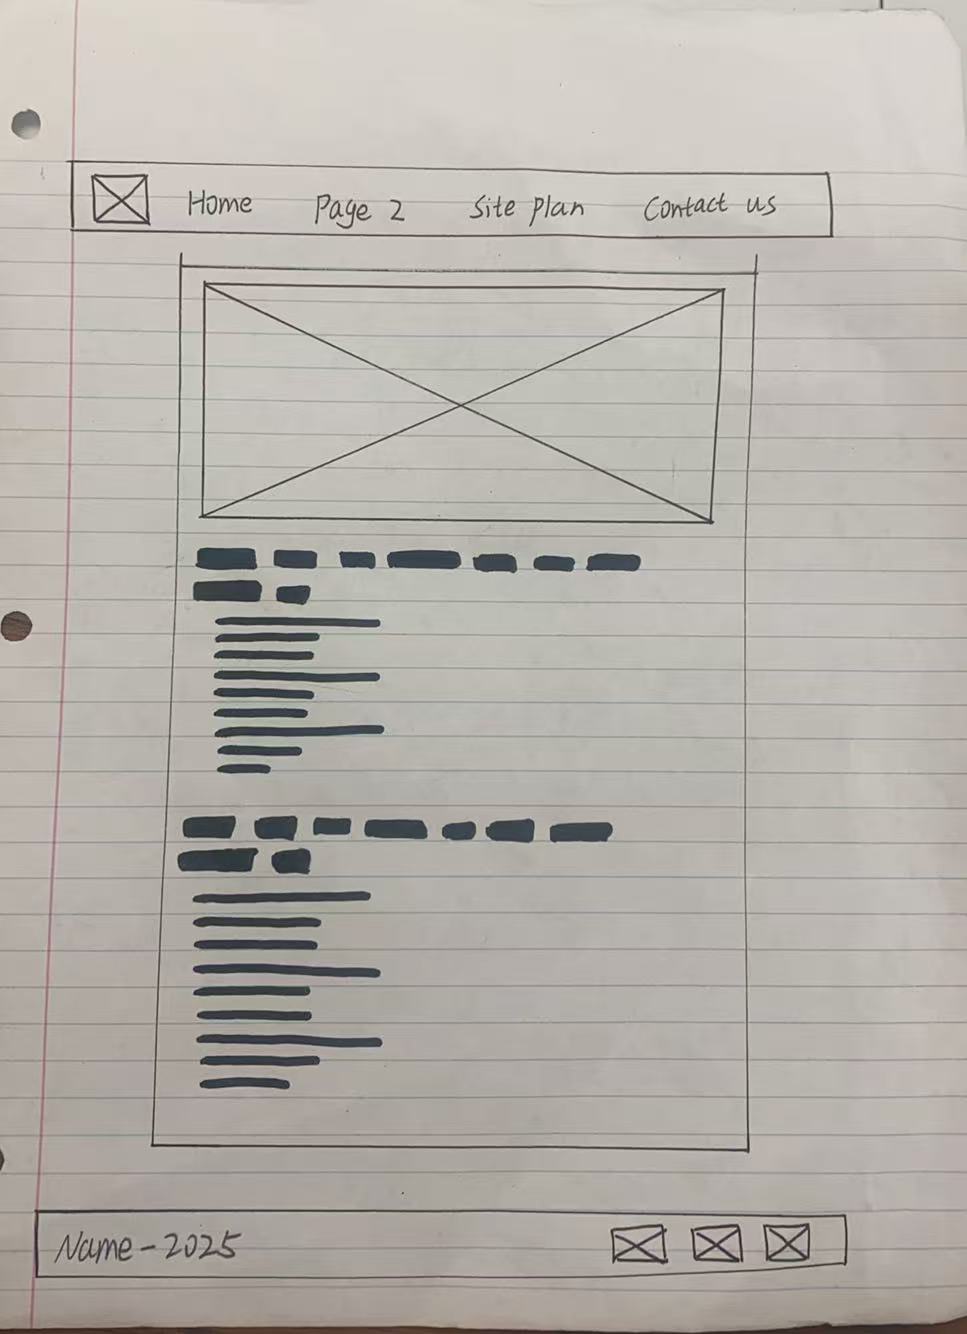 Home Page 2 Site Plan Contact us
Name - 2025